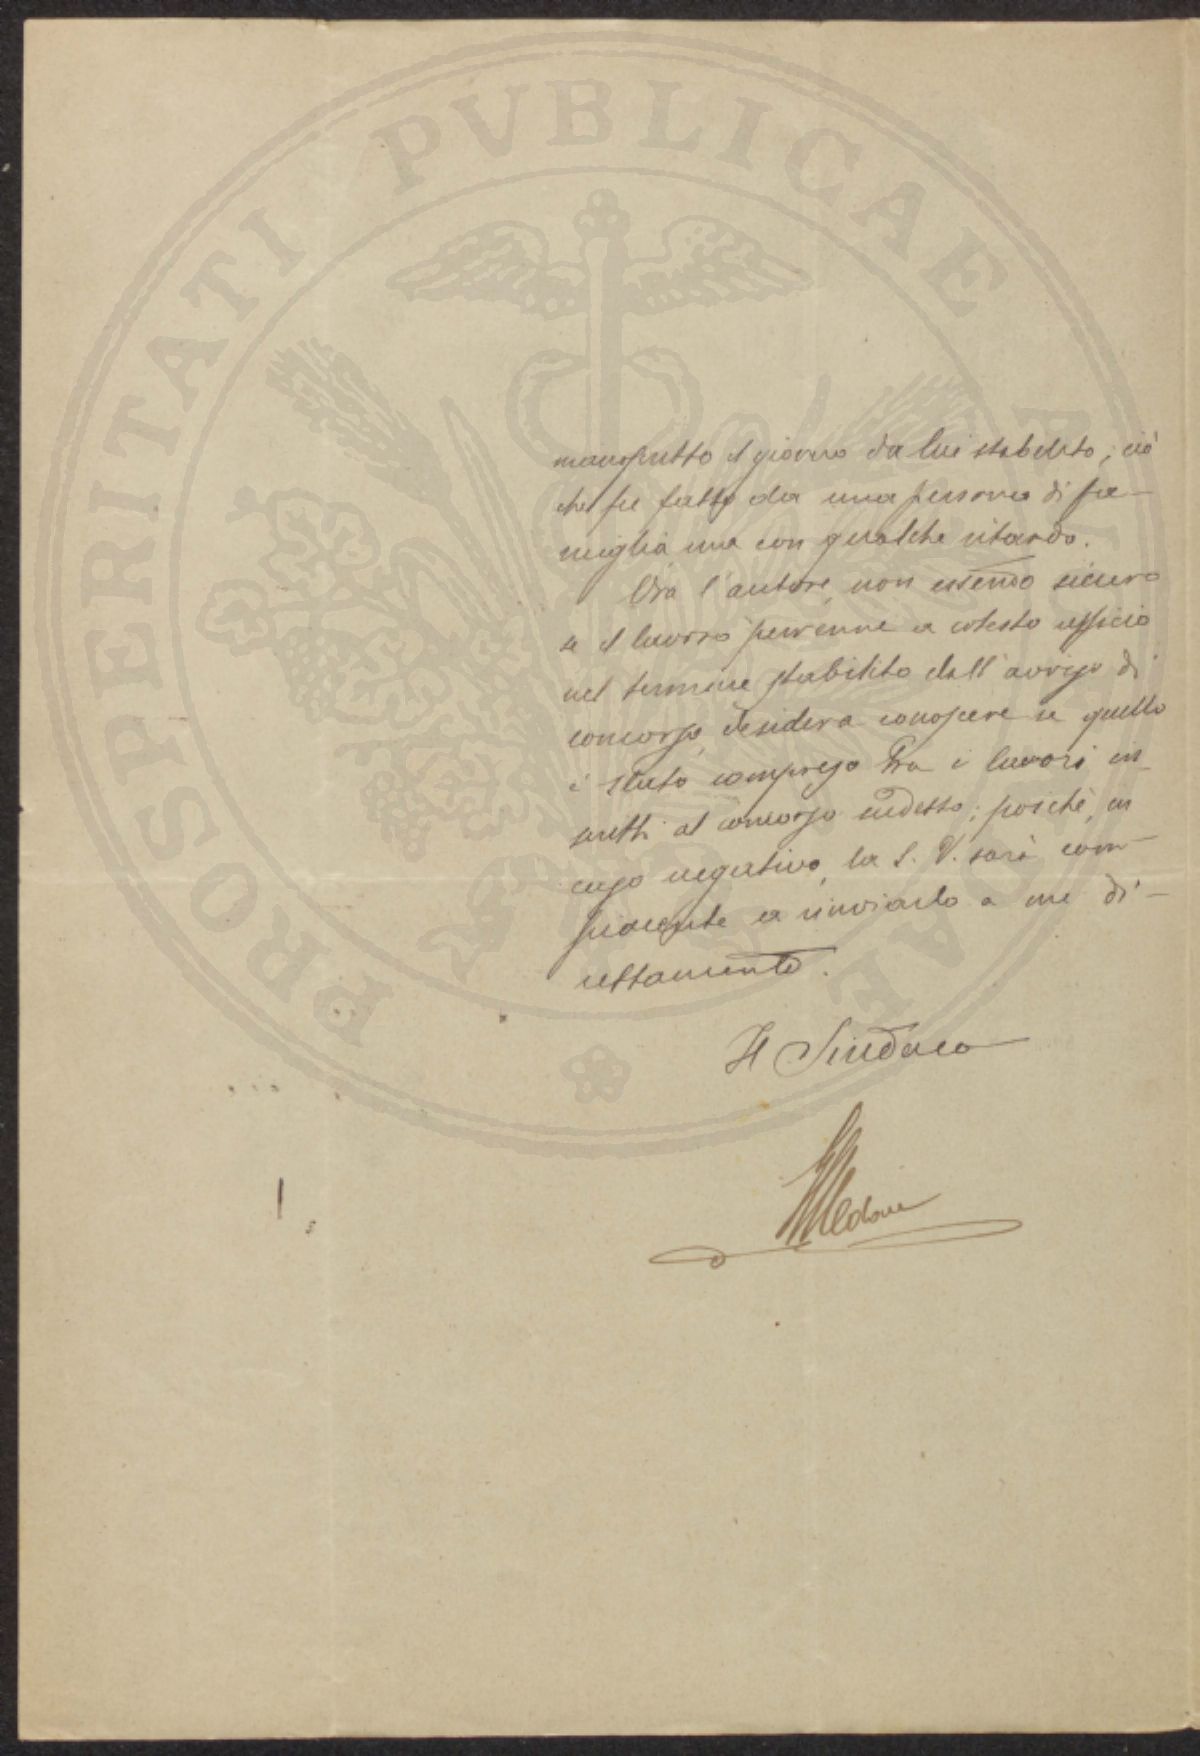 manoscritto il giorno da lui stabilito; ciò
che fu fatto da una persona di fa-
miglia ma con qualche ritardo.
Ora l'autore, non essendo sicuro
se il lavoro pervenne a cotesto ufficio
nel termine stabilito dall'avviso di
concorso, desidera conoscere se quello
è stato compreso tra i lavori in-
scritti al concorso suddetto; poichè, in
caso negativo, la S. V. sarà com-
piacente a rinviarlo a me di-
rettamente.
Il Sindaco
PROSPERITATI PVBLICAE